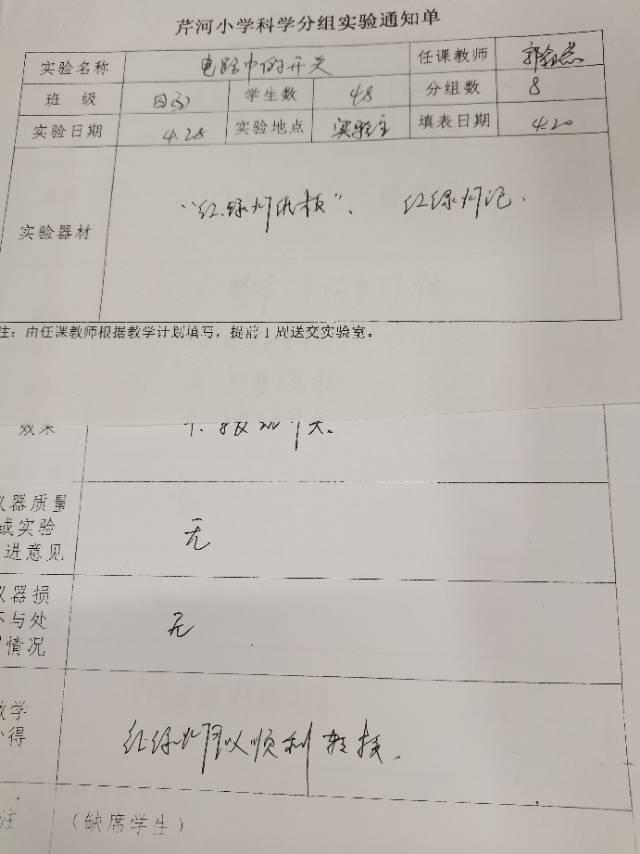 芹河小学科学分组实验通知单
实验名称 电路中的开关 任课教师
班 级 学生数 48 分组数 8
实验日期 4.28 实验地点 实验室 填表日期 4.20
实验器材 “红绿灯纸板”、 红绿灯
注：由任课教师根据教学计划填写，提前1周送交实验室。
效果
仪器质量
或实验
进意见 无
仪器损
与处
情况 无
教学
心得 红绿灯可以顺利转换.
注 （缺席学生）